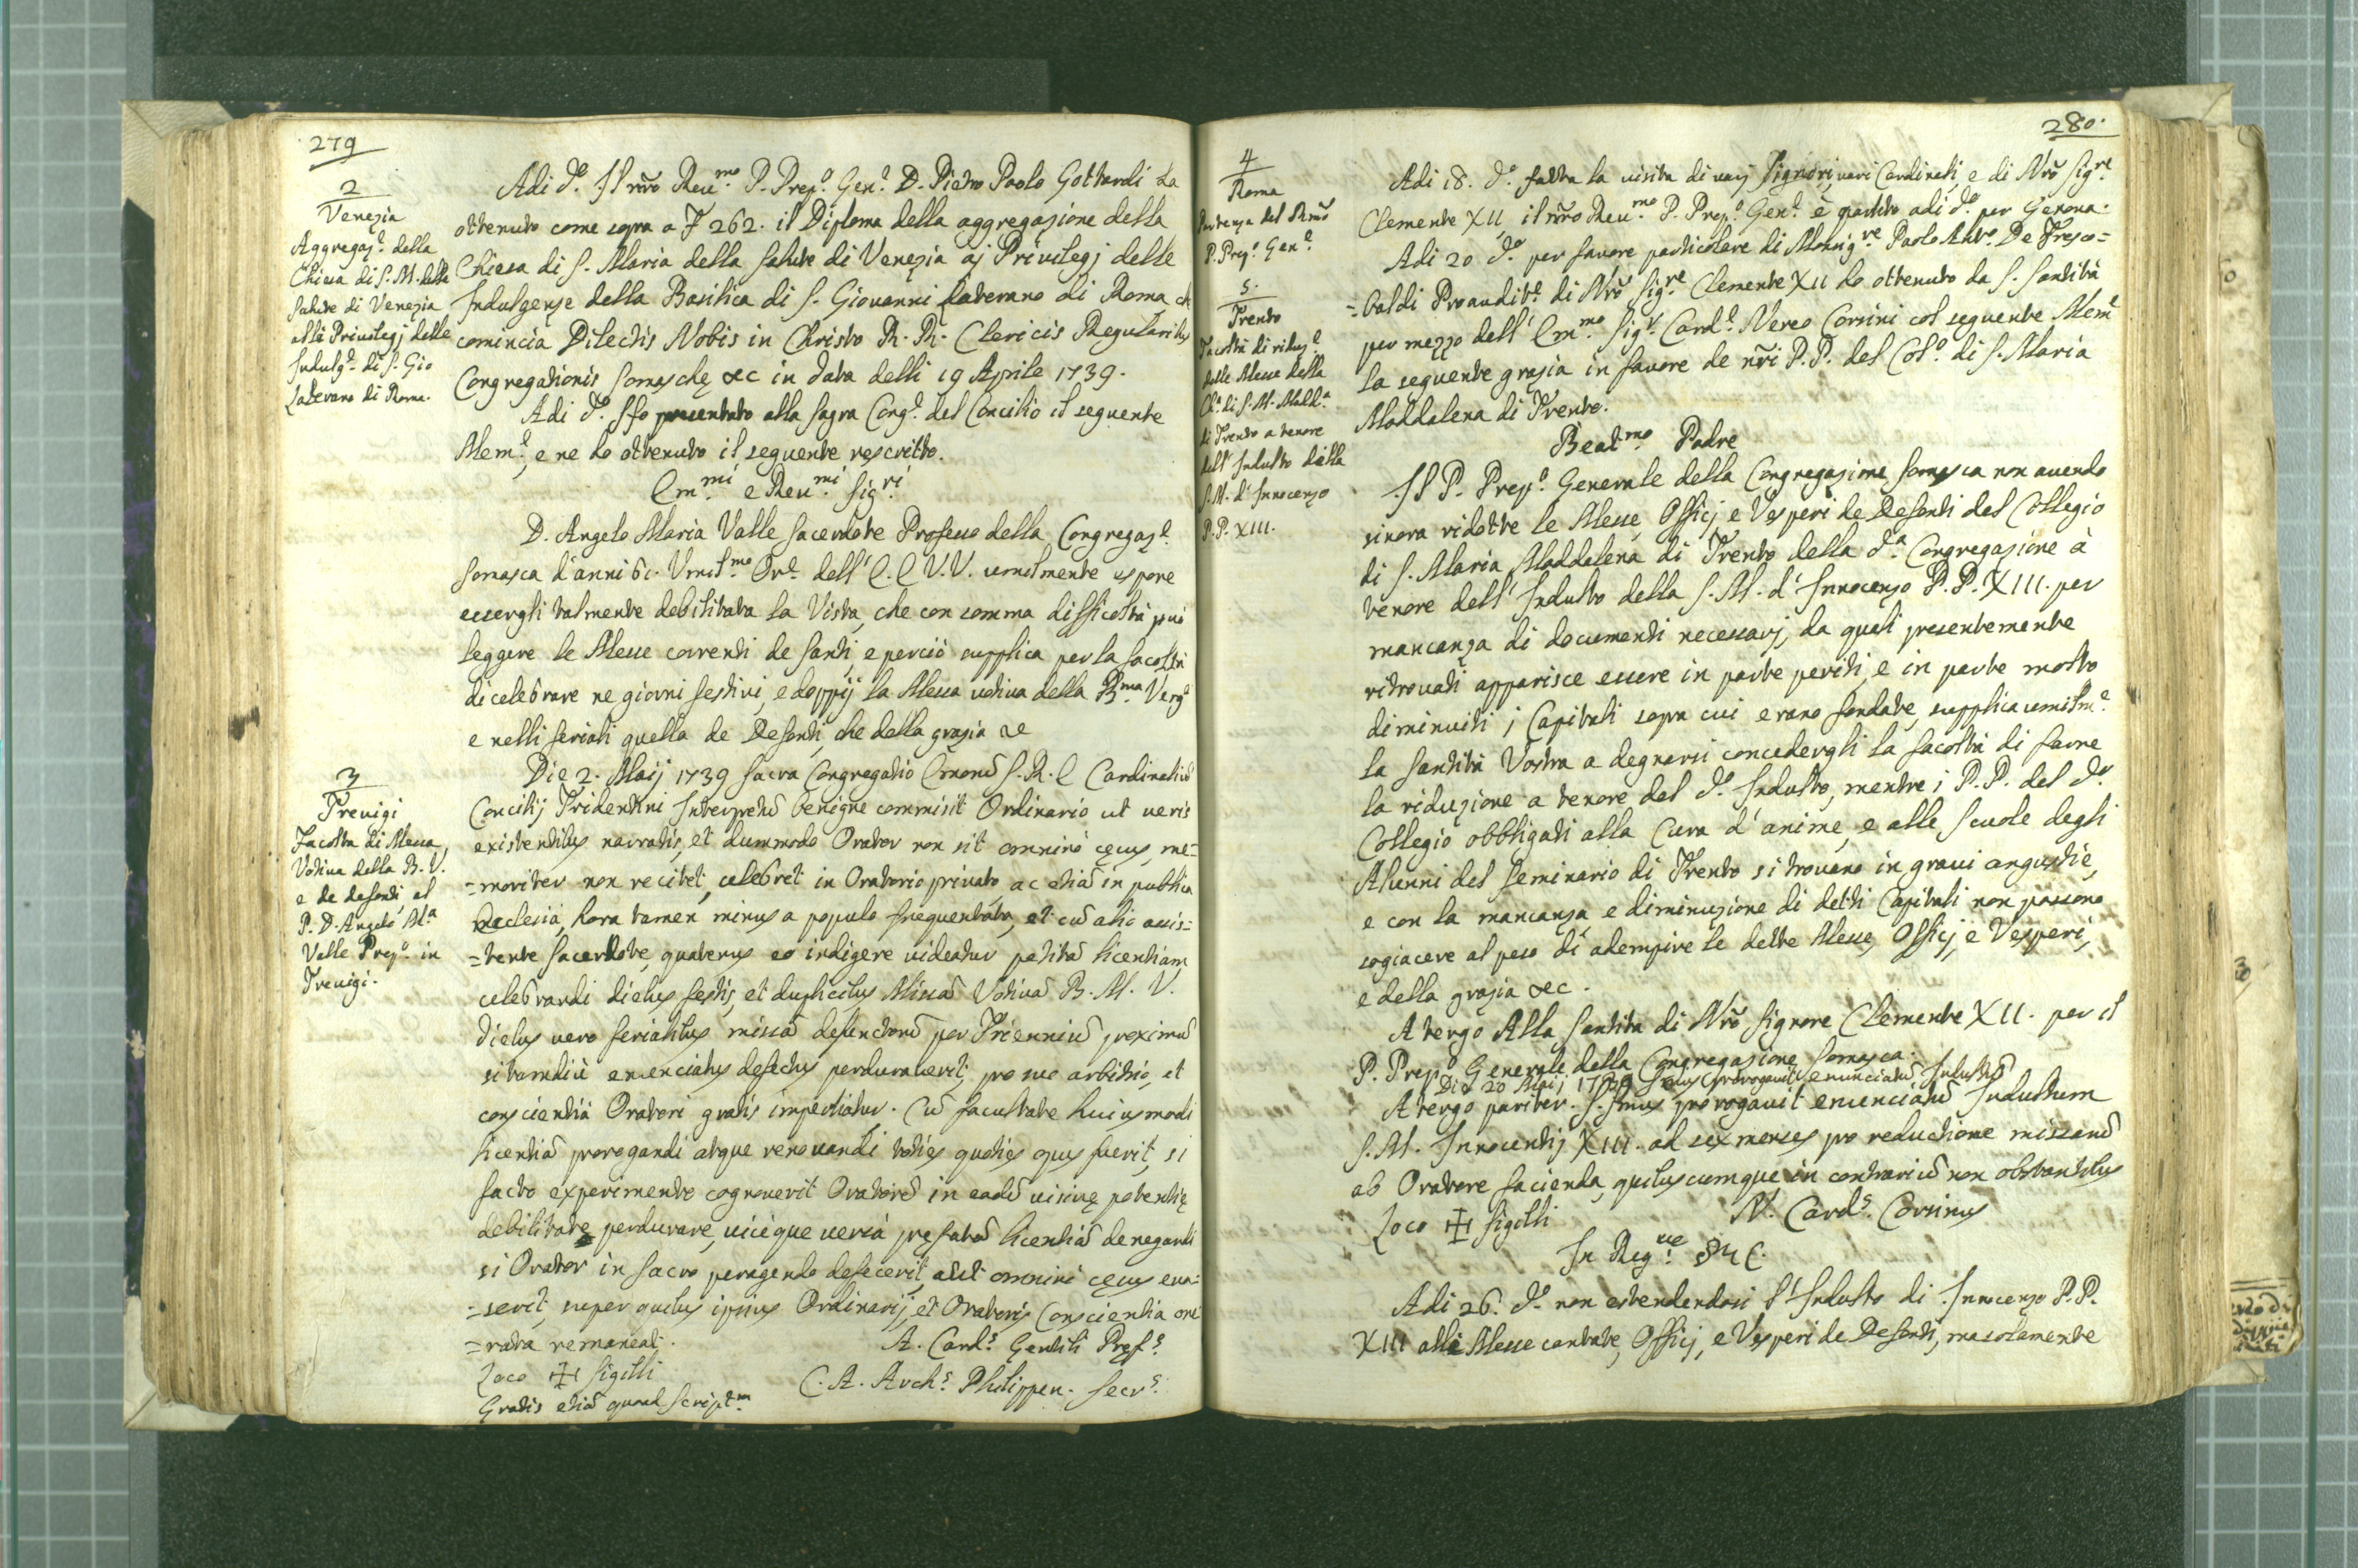 279
2
Venezia
Aggregaz.e della
Chiesa di S. M. della
Salute di Venezia
alli Privilegj delle
Indulg.e di S. Gio
Laterano di Roma.
Adi d.o Il nr̃o Reu.mo P. Prep.o Gen.e D. Pietro Paolo Gottardi ha
ottenuto come sopra a F 262. il Diploma della aggregazione della
Chiesa di S. Maria della Salute di Venezia aj Privilegj delle
Indulgenze della Basilica di S. Giovanni Laterano di Roma, ch
comincia Dilectis Nobis in Christo R. R. Clericis Regularibus
Congregationis Somaschę &c in data delli 19 Aprile 1739.
Adi d.o Ho presentato alla Sagra Cong.e del Concilio il seguente
Mem.e, e ne ho ottenuto il seguente rescritto.
Em.mi e Reu.mi Sig.ri
D. Angelo Maria Valle Sacerdote Professo della Congregaz.e
Somasca d'anni 61. Vmil.mo Or.e dell' E. E V.V. umilmente espone
essergli talmente debilitata la Vista, che con somma difficoltà può
leggere le Messe correnti de Santi, e perciò supplica per la facoltà
di celebrare ne giorni festivi, e doppij la Messa votiva della B.ma Verg.e
e nelli feriali quella de Defonti, che della grazia &c
3
Trevigi
Facoltà di Messa
Votiva della B. V.
e de defonti al
P. D. Angelo M.a
Valle Prep.o in
Trevigi.
Die 2. Maij 1739 Sacra Congregatio Emor̃u S. R. E Cardinaliũ
Concilij Tridentini Interpretũ benigne commisit Ordinario ut veris
existentibus narratis, et dummodo Orator non sit omninò cęcus, me=
=moriter non recitet, celebret in Oratorio privato ac etiã in publica
Ecclesia, hora tamen minus a populo frequentata, et cũ alio assis=
=tente Sacerdote, quatenus eo indigere videatur petitã licentiam
celebrandi diebus festis, et duplicibus Missã Votivã B. M. V.
Diebus vero ferialibus missã defunctorũ per Trienniũ proximũ
si tamdiù enunciatus defectus perduraverit, pro suo arbitrio, et
conscientià Oratori gratis impertiatur. Cũ facultate huiusmodi
licentiã prorogandi atque renovandi toties quoties opus fuerit, si
facto experimento cognoverit Oratorẽ in eadẽ visivę potentię
debilitate perdurare, viceque versà prefatã licentiã denegandi
si Orator in sacro peragendo defecerit, aut omninò cęcus eva=
=serit, super quibus ipsius Ordinarij, et Oratoris Conscientia one
=rata remaneat.
A. Card.s Gentili Pref.s
Loco ✠ Sigilli
C. A. Arch.s Philippen. Secr.s
Gratis etiã quoad Script.m
280.
4
Roma
Partenza del Rm̃o
P. Prep.o Gen.e
Adi 18. d.o fatta la visita di varj Signori, vari Cardinali, e di Nr̃o Sig.re
Clemente XII, il nr̃o Reu.mo P. Prep.o Gen.e è partito adi d.o per Genova.
5.
Trento
Facoltà di riduz.e
delle Messe della
Ch.a di S. M. Madd.a
di Trento a tenore
dell' Indulto della
S. M. d' Innocenzo
P. P. XIII.
Adi 20 d.o per favore particolare di Monsig.re Paolo Ant.o De Fresco=
=baldi Proaudit.e di Nr̃o Sig.re Clemente XII ho ottenuto da S. Santità
per mezzo dell' Em.mo Sig.r Card.e Nereo Corsini col seguente Mem.e
la seguente grazia in favore de nr̃i P. P. del Col.o di S. Maria
Maddalena di Trento.
Beat.mo Padre
Il P. Prep.o Generale della Congregazione Somasca non avendo
sinora ridotte le Messe, Officj e Vesperi de Defonti del Collegio
di S. Maria Maddalena di Trento della d.a Congregazione à
tenore dell' Indulto della S. M. d' Innocenzo P. P. XIII. per
mancanza di documenti necessarj, da quali presentemente
ritrovati apparisce essere in parte periti, e in parte molto
diminuiti i Capitali sopra cui erano fondate, supplica umilm.e
la Santità Vostra a degnarsi concedergli la facoltà di farne
la riduzione a tenore del d.o Indulto, mentre i P. P. del d.o
Collegio obbligati alla Cura d' anime, e alle Scuole degli
Alunni del Seminario di Trento si trovano in gravi angustie,
e con la mancanza e diminuzione di detti Capitali non possono
sogiacere al peso di adempire le dette Messe, Officj, e Vesperi,
e della grazia &c.
A tergo Alla Santità di Nr̃o Signore Clemente XII. per il
P. Prep.o Generale della Congregazione Somasca.
Die 20 Maij 1739 Ssm̃us prorogavit enunciatũ Indultũ
A tergo pariter. Ssm̃us prorogavit enunciatũ Indultum
S. M. Innocentij XIII. ad sex menses pro reductione missarũ
ab Oratore facienda, quibuscumque in contrariũ non obstantibus
Loco ✠ Sigilli
N. Card.s Corsinus
In Reg.ne
Adi 26. d.o non estendendosi l' Indulto di Innocenzo P. P.
XIII alle Messe cantate, Officj, e Vesperi de Defonti, ma solamente